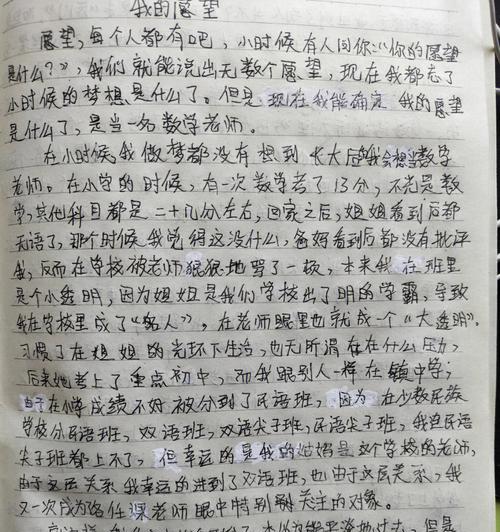 我的愿望
愿望,每个人都有吧,小时候有人问你:“你的愿望
是什么?”,我们就能说出无数个愿望,现在我都忘了
小时候的梦想是什么了。但是现在我能确定我的愿望
是什么了,是当一名数学老师。
在小时候我做梦都没有想到长大后我会想当数学
老师。在小学的时候,有一次数学考了13分,不光是数
学,其他科目都是二十几分左右,回家之后,姐姐看到后都
无语了,那个时候我觉得这没什么,爸妈看到后都没有批评
我,反而在学校被老师狠狠地骂了一顿,本来我在班里
是个小透明,因为姐姐是我们学校出了明的学霸,导致
我在学校里成了“名人”,在老师眼里也就成一个“大透明”。
习惯了在姐姐的光环下生活,也无所谓存在什么压力,
后来她考上了重点初中,而我跟别人一样在镇中学;
由于在小学成绩不好被分到了民语班,因为在少数民族
学校分民语班,双语班,双语尖子班,民语尖子班,我连民语
尖子班都上不了,但幸运的是我的姑妈是这个学校的老师,
由于这层关系我幸运的进到了双语班,也由于这层关系,我
又一次成为各任课老师眼中特别关注的对象。